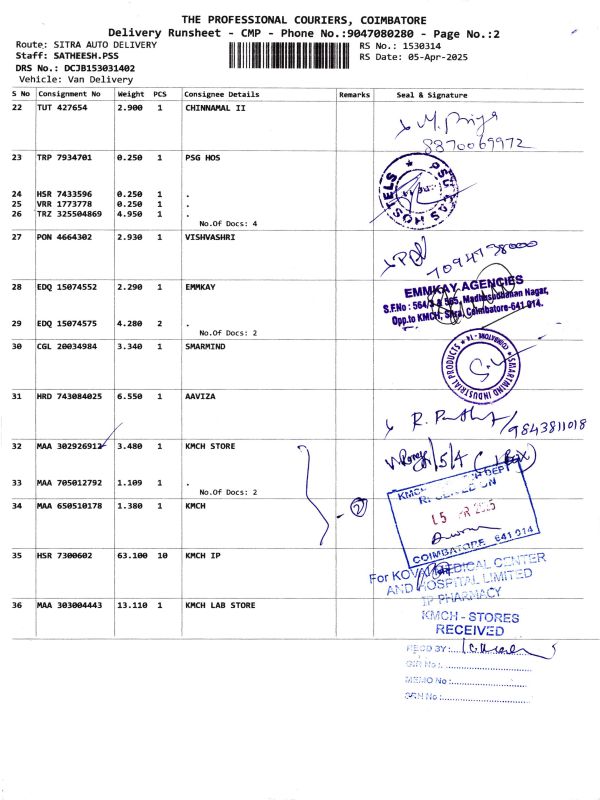 THE PROFESSIONAL COURIERS, COIMBATORE
Delivery Runsheet - CMP - Phone No.:9047080280 - Page No.:2
Route: SITRA AUTO DELIVERY
Staff: SATHEESH.PSS
DRS No.: DCJB153031402
Vehicle: Van Delivery
RS No.: 1530314
RS Date: 05-Apr-2025
S No Consignment No Weight PCS Consignee Details Remarks Seal & Signature
22 TUT 427654 2.900 1 CHINNAMAL II
M. Priya
8870069972
23 TRP 7934701 0.250 1 PSG HOS
24 HSR 7433596 0.250 1 .
25 VRR 1773778 0.250 1 .
26 TRZ 325504869 4.950 1 .
No.Of Docs: 4
PSG CAS HOSTELS
27 PON 4664302 2.930 1 VISHVASHRI
7094798000
28 EDQ 15074552 2.290 1 EMMKAY
29 EDQ 15074575 4.280 2 .
No.Of Docs: 2
EMMKAY AGENCIES
S.F.No : 564/3 & 565, Madhusudhanan Nagar,
Opp.to KMCH, Sitra, Coimbatore-641 014.
30 CGL 20034984 3.340 1 SMARMIND
SMARTMIND INDUSTRIAL PRODUCTS
COIMBATORE - 14
31 HRD 743084025 6.550 1 AAVIZA
9843811018
32 MAA 302926912 3.480 1 KMCH STORE
33 MAA 705012792 1.109 1 .
No.Of Docs: 2
34 MAA 650510178 1.380 1 KMCH
2
RECEIVED ON
COIMBATORE 641 014
35 HSR 7300602 63.100 10 KMCH IP
For KOVAI MEDICAL CENTER
AND HOSPITAL LIMITED
IP PHARMACY
36 MAA 303004443 13.110 1 KMCH LAB STORE
KMCH - STORES
RECEIVED
RECD BY:
GIR No:
MEMO No:
GRN No: